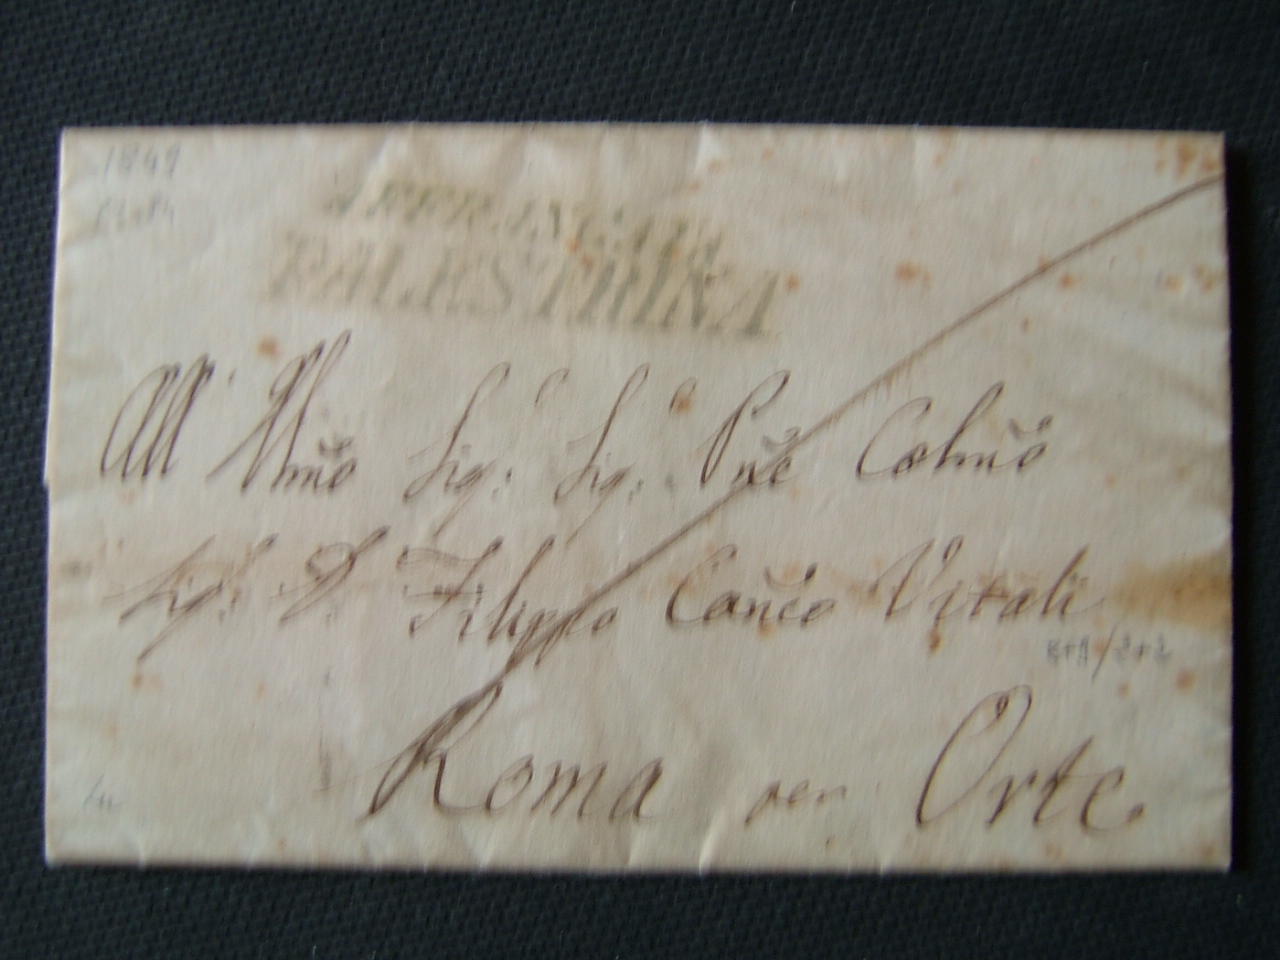 1849
AFFRANCATA
PALESTRINA
All' Illmo Sig. Sig. Pne Colmo
Sig. D. Filippo Canco Vitali
Roma per Orte